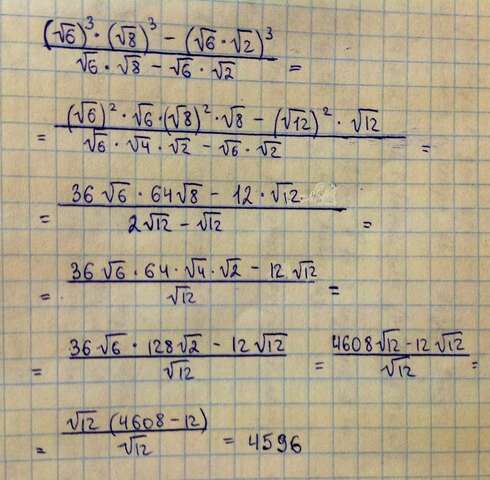 ((√6)³ · (√8)³ − (√6 · √2)³) / (√6 · √8 − √6 · √2) =
= ((√6)² · √6 · (√8)² · √8 − (√12)² · √12) / (√6 · √4 · √2 − √6 · √2) =
= (36√6 · 64√8 − 12 · √12) / (2√12 − √12) =
= (36√6 · 64 · √4 · √2 − 12√12) / √12 =
= (36√6 · 128√2 − 12√12) / √12 = (4608√12 − 12√12) / √12 =
= √12 (4608 − 12) / √12 = 4596